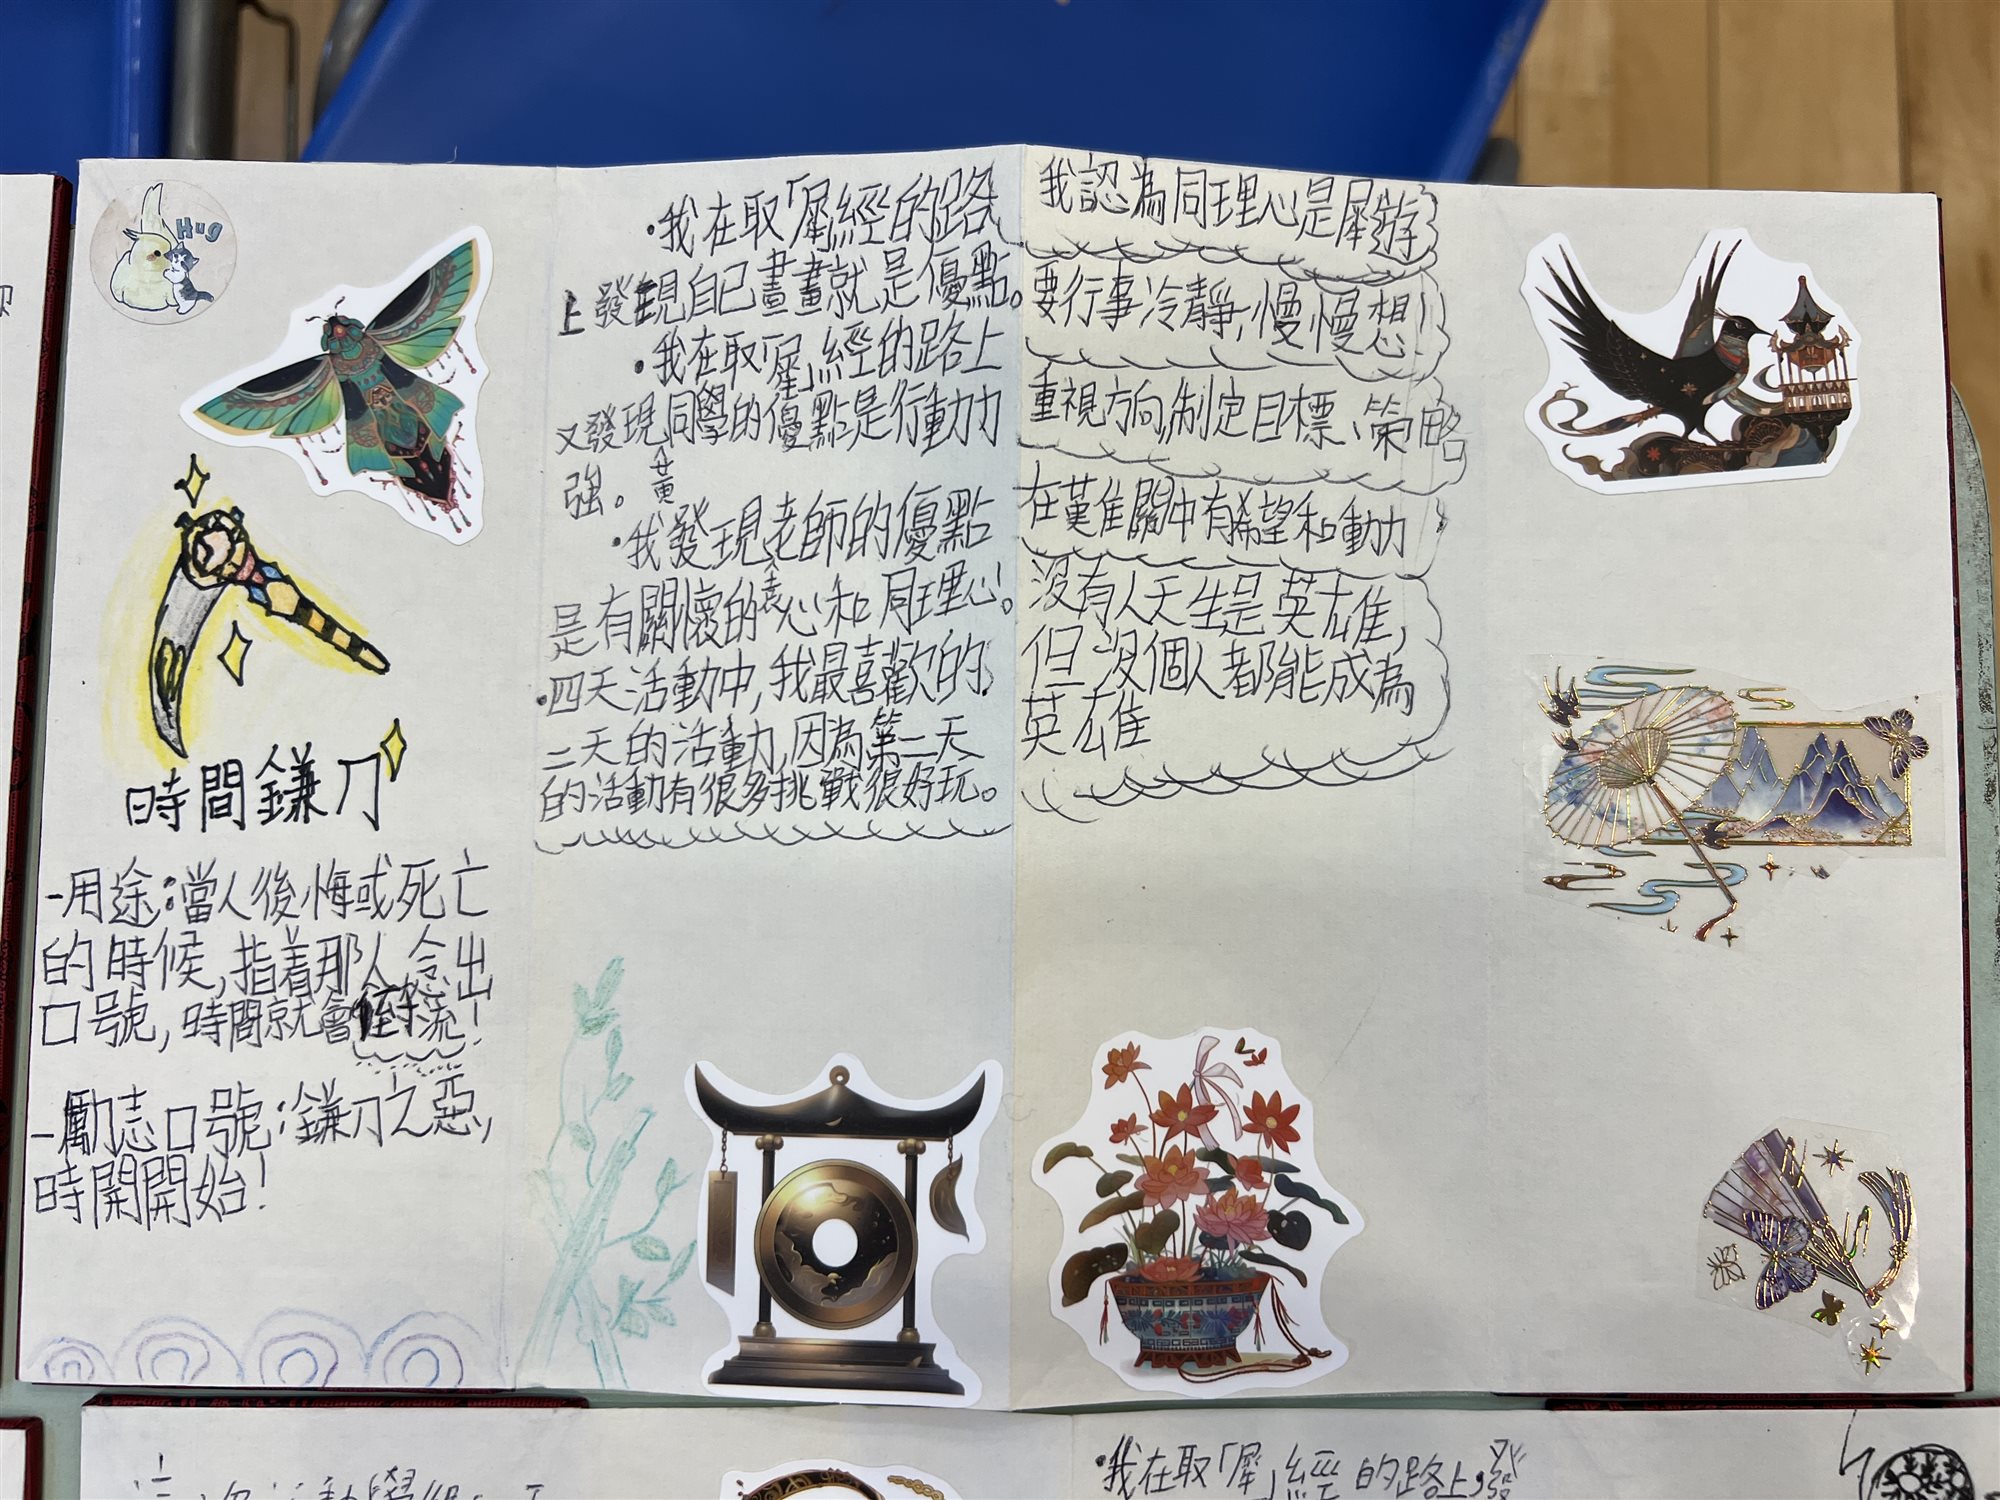 Hug
時間鐮刀
-用途:當人後悔或死亡
的時候,指着那人念出
口號,時間就會倒流!
-勵志口號:鐮刀之惡,
時開開始!
·我在取「犀」經的路
上發現自己畫畫就是優點。
·我在取「犀」經的路上
又發現同學的優點是行動力
強。
·我發現黃老師的優點
是有關懷的愛心和同理心!
·四天活動中,我最喜歡的
二天的活動,因為第二天
的活動有很多挑戰很好玩。
我認為同理心是犀遊
要行事冷靜,慢慢想
重視方向,制定目標、策略
在萬難關中有希望和動力
沒有人天生是英雄,
但沒個人都能成為
英雄
·我在取「犀」經的路上發